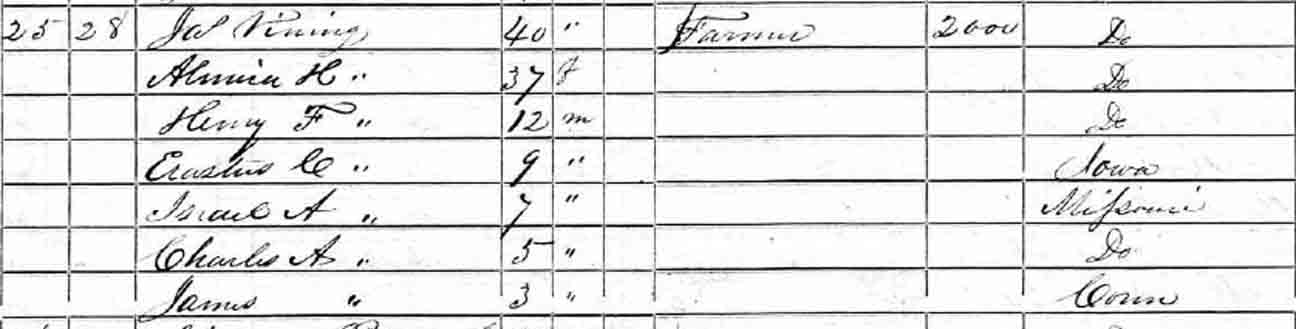 25 28 Jas Vining 40 " Farmer 2000 Do
Almira H " 37 f Do
Henry F " 12 m Do
Erastus C " 9 " Iowa
Israel A " 7 " Missouri
Charles A " 5 " Do
James " 3 " Conn